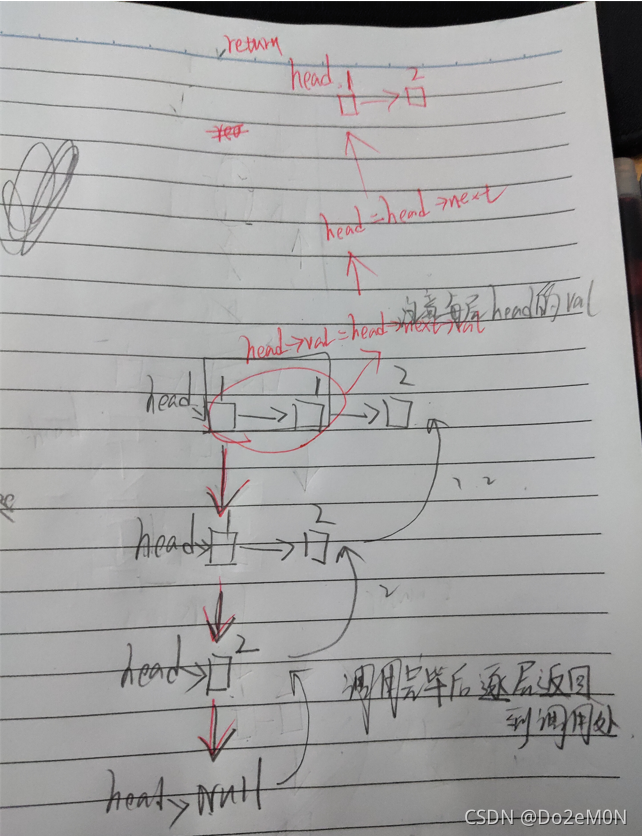 return
head 1 2
head=head→next
注意每层head的val
head→val=head→next→val
head 1 1 2
1 2
head 1 2
2
head 2
调用完毕后逐层返回
到调用处
head→null
CSDN @Do2eM0N